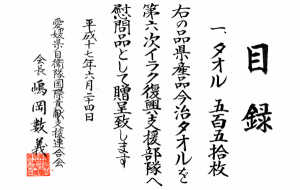 目録
一、タオル 五百五拾枚
右の品県産品今治タオルを
第六次イラク復興支援部隊へ
慰問品として贈呈致します
平成十七年六月二十四日
愛媛県自衛隊国際貢献支援連合会
会長 嶋岡数義